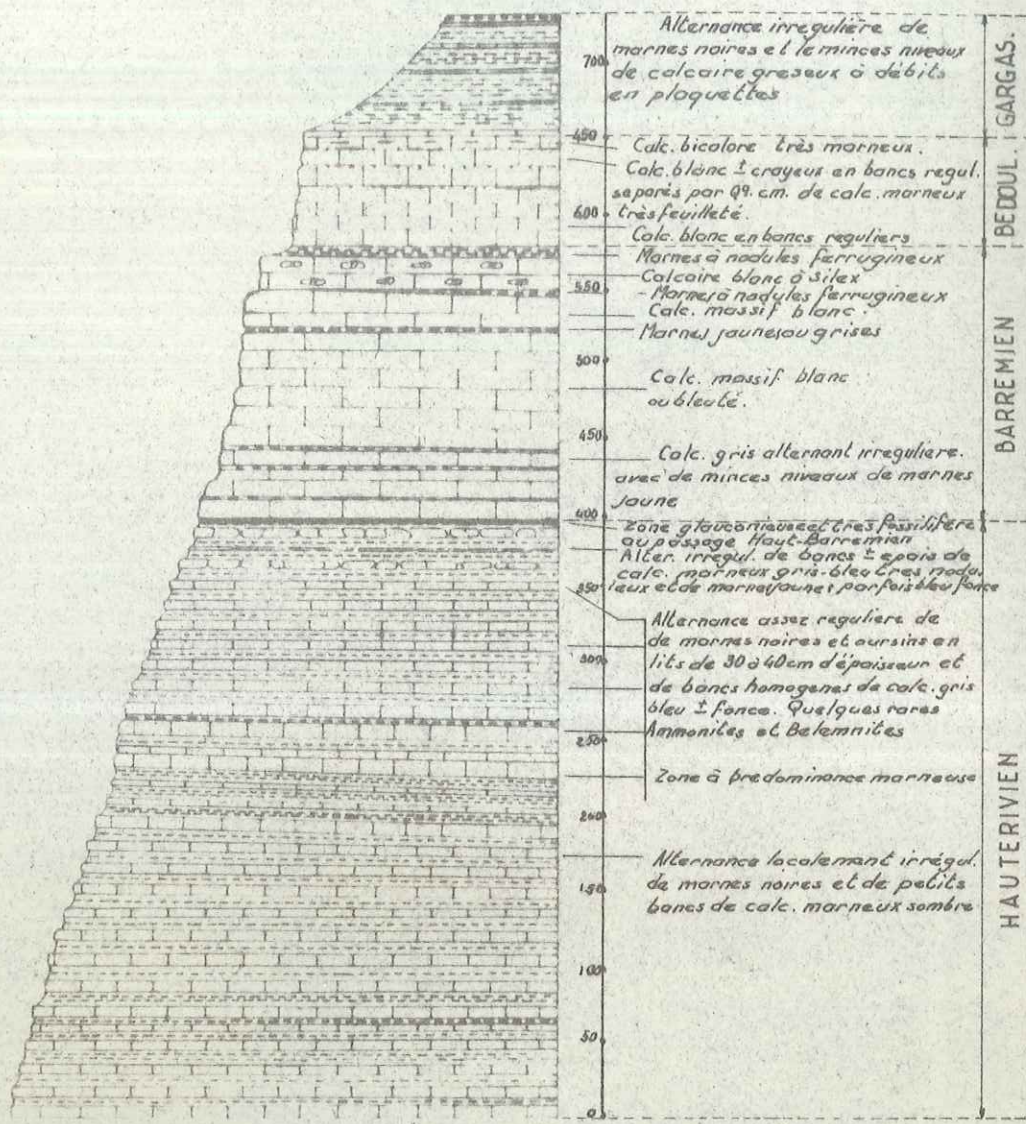 Alternance irregulière de
marnes noires et le minces niveaux
de calcaire greseux à débits
en plaquettes
Calc. bicolore très marneux.
Calc. blanc ± crayeux en bancs regul.
separés par qq. cm. de calc. marneux
très feuilleté.
Calc. blanc en bancs reguliers
Marnes à nodules ferrugineux
Calcaire blanc à Silex
- Marnes à nodules ferrugineux
Calc. massif blanc.
Marnes jaunes ou grises
Calc. massif blanc
ou bleuté.
Calc. gris alternant irreguliere.
avec de minces niveaux de marnes
jaune
Zone glauconieuse et tres fossilifère
au passage Haut-Barremien
Alter. irregul. de bancs ± epais de
calc. marneux gris-bleu tres nodu-
leux et de marne jaunes parfois bleu fonce
Alternance assez reguliere de
de marnes noires et oursins en
lits de 30 à 40cm d'épaisseur et
de bancs homogenes de calc. gris
bleu ± fonce. Quelques rares
Ammonites et Belemnites
Zone à predominance marneuse
Alternance localemant irrégul.
de marnes noires et de petits
bancs de calc. marneux sombre
700
650
600
550
500
450
400
350
300
250
200
150
100
50
0
GARGAS.
BEDOUL.
BARREMIEN
HAUTERIVIEN